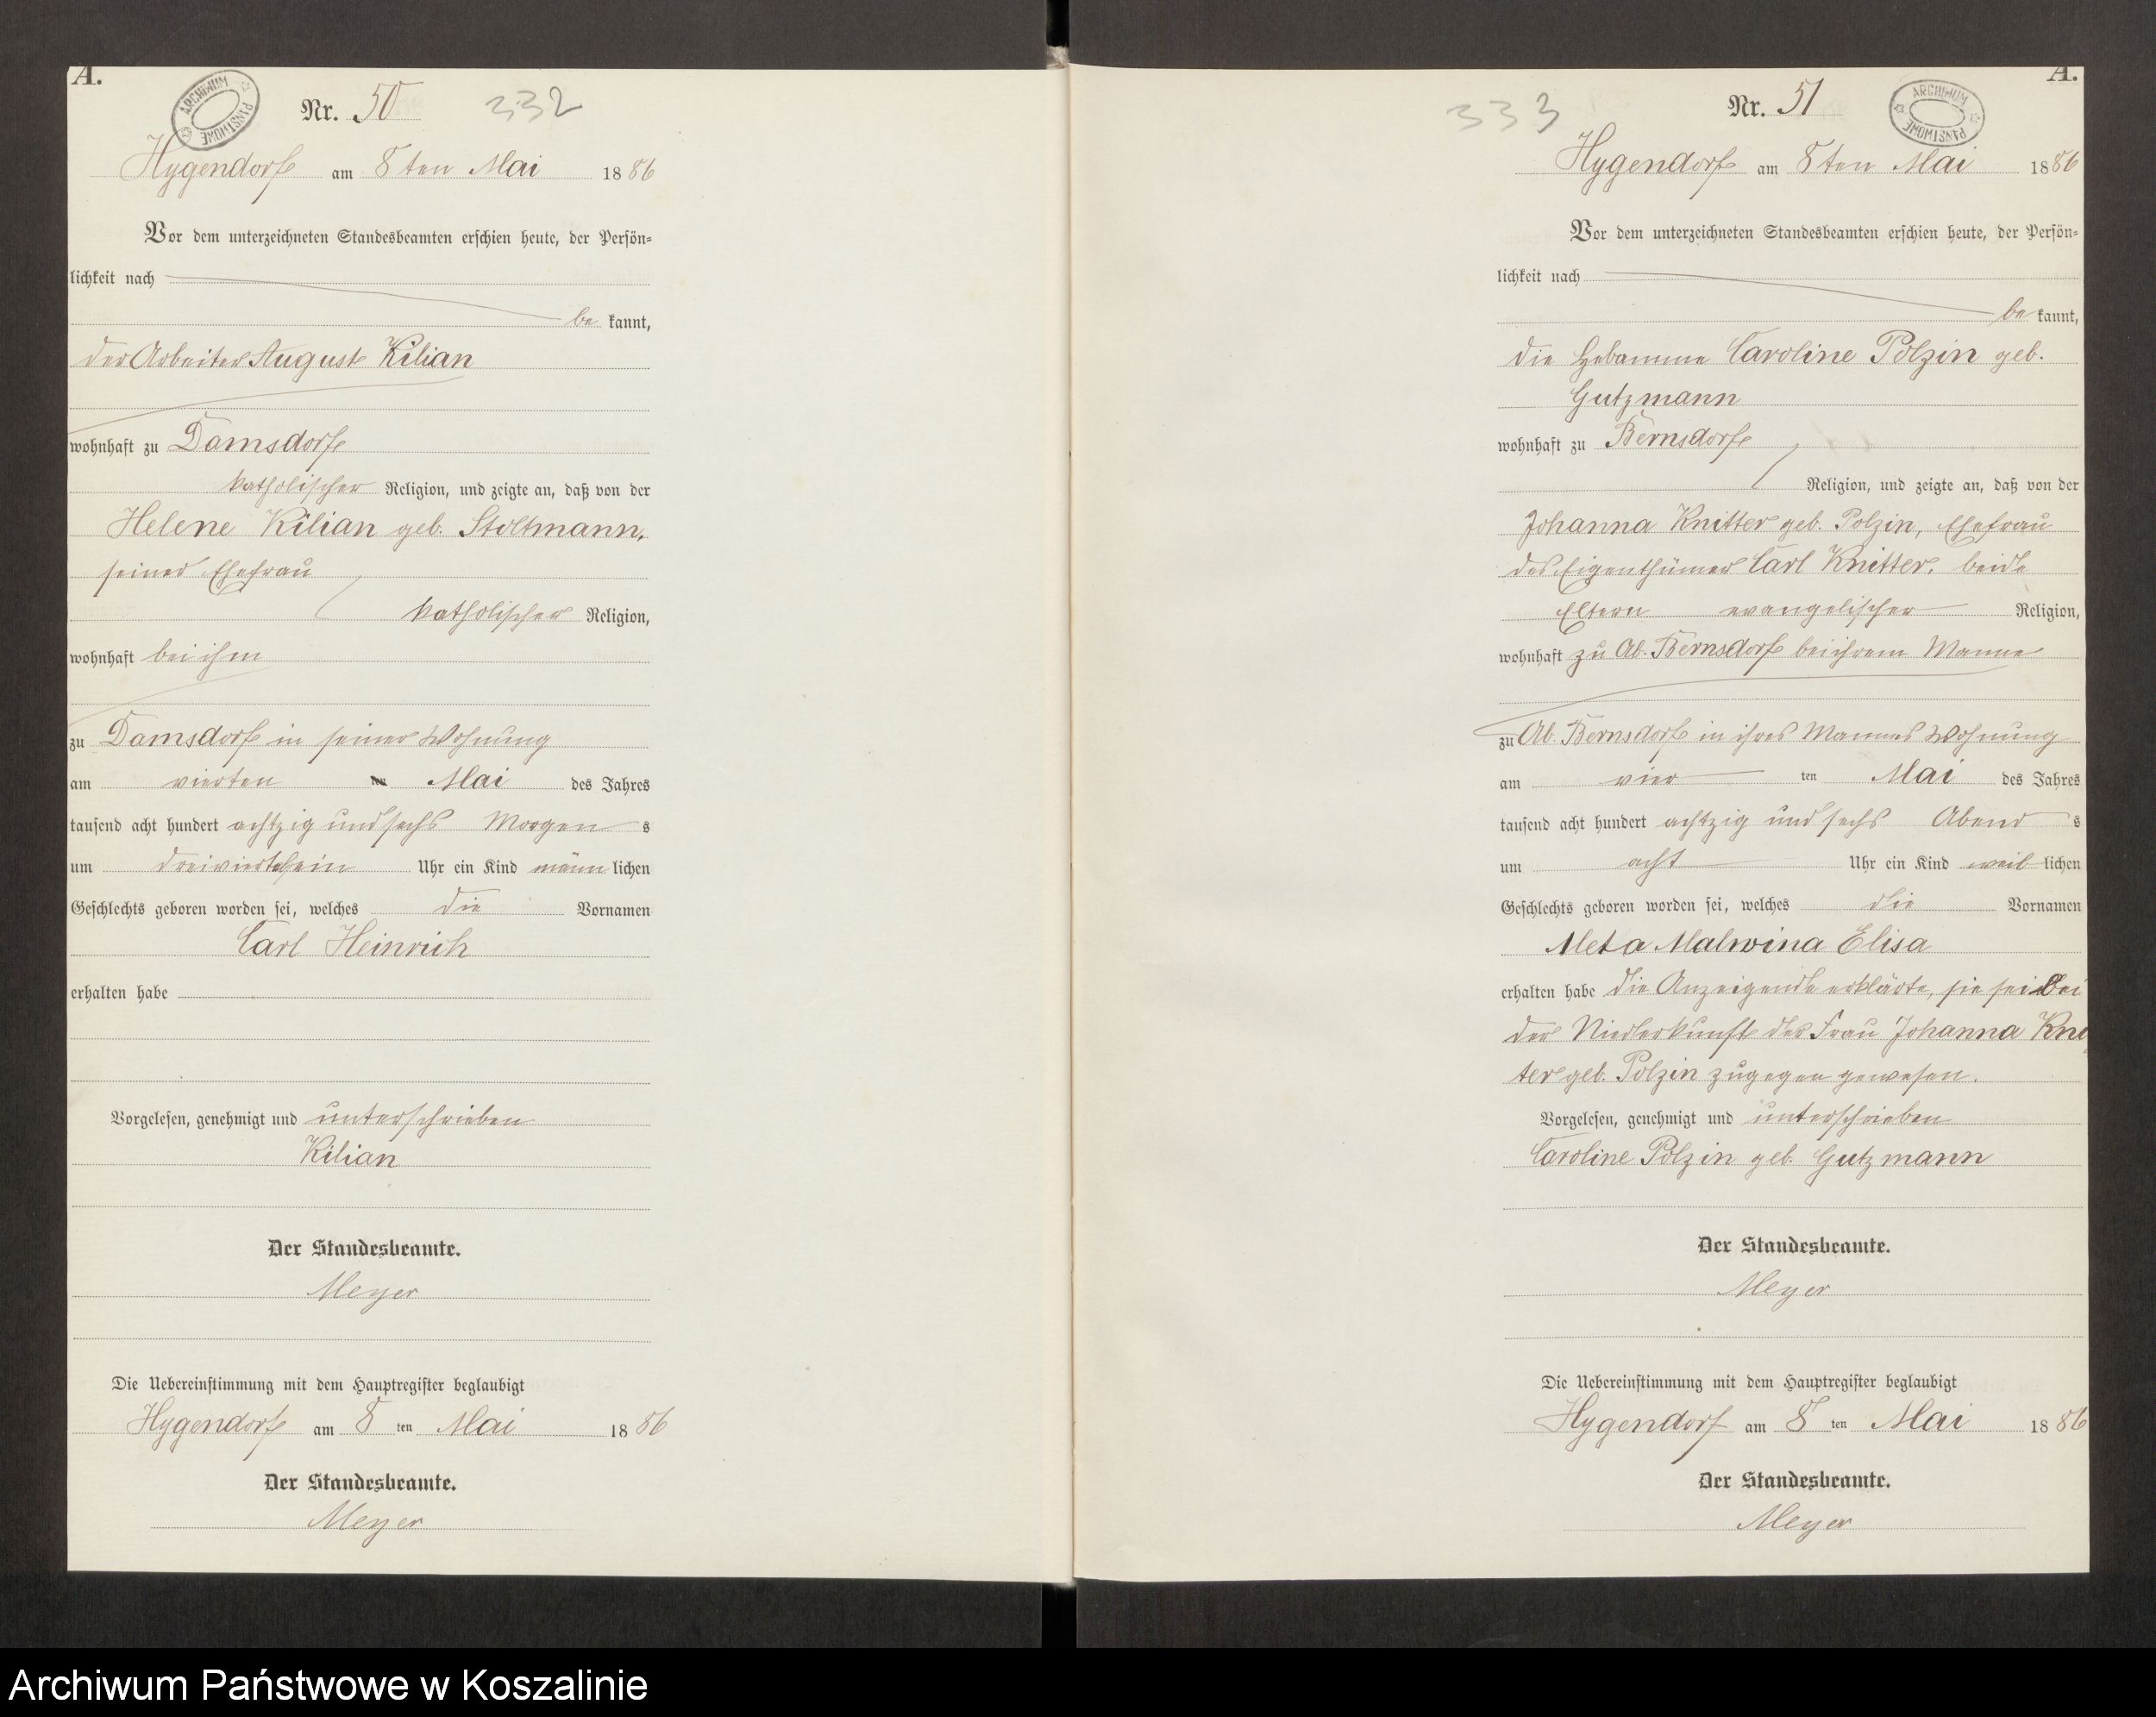 A.
ARCHIWUM PAŃSTWOWE
Nr. 50 332
Hygendorf am 8ten Mai 1886
Vor dem unterzeichneten Standesbeamten erschien heute, der Persön-
lichkeit nach
be kannt,
der Arbeiter August Kilian
wohnhaft zu Damsdorf
katholischer Religion, und zeigte an, daß von der
Helene Kilian geb. Stoltmann,
seiner Ehefrau
katholischer Religion,
wohnhaft bei ihm
zu Damsdorf in seiner Wohnung
am vierten ten Mai des Jahres
tausend acht hundert achtzig und sechs Morgen s
um dreiviertelein Uhr ein Kind männ lichen
Geschlechts geboren worden sei, welches die Vornamen
Carl Heinrich
erhalten habe
Vorgelesen, genehmigt und unterschrieben
Kilian
Der Standesbeamte.
Meyer
Die Uebereinstimmung mit dem Hauptregister beglaubigt
Hygendorf am 8 ten Mai 1886
Der Standesbeamte.
Meyer
A.
333 Nr. 51
ARCHIWUM PAŃSTWOWE
Hygendorf am 8ten Mai 1886
Vor dem unterzeichneten Standesbeamten erschien heute, der Persön-
lichkeit nach
be kannt,
die Hebamme Caroline Polzin geb.
Gutzmann
wohnhaft zu Bernsdorf
Religion, und zeigte an, daß von der
Johanna Knitter geb. Polzin, Ehefrau
des Eigenthümer Carl Knitter, beide
Eltern evangelischer Religion,
wohnhaft zu Ab. Bernsdorf bei ihrem Manne
zu Ab. Bernsdorf in ihres Mannes Wohnung
am vier ten Mai des Jahres
tausend acht hundert achtzig und sechs Abend s
um acht Uhr ein Kind weib lichen
Geschlechts geboren worden sei, welches die Vornamen
Meta Malwina Elisa
erhalten habe die Anzeigende erklärte, sie sei bei
der Niederkunft der Frau Johanna Kni
ter geb. Polzin zugegen gewesen.
Vorgelesen, genehmigt und unterschrieben
Caroline Polzin geb. Gutzmann
Der Standesbeamte.
Meyer
Die Uebereinstimmung mit dem Hauptregister beglaubigt
Hygendorf am 8 ten Mai 1886
Der Standesbeamte.
Meyer
Archiwum Państwowe w Koszalinie